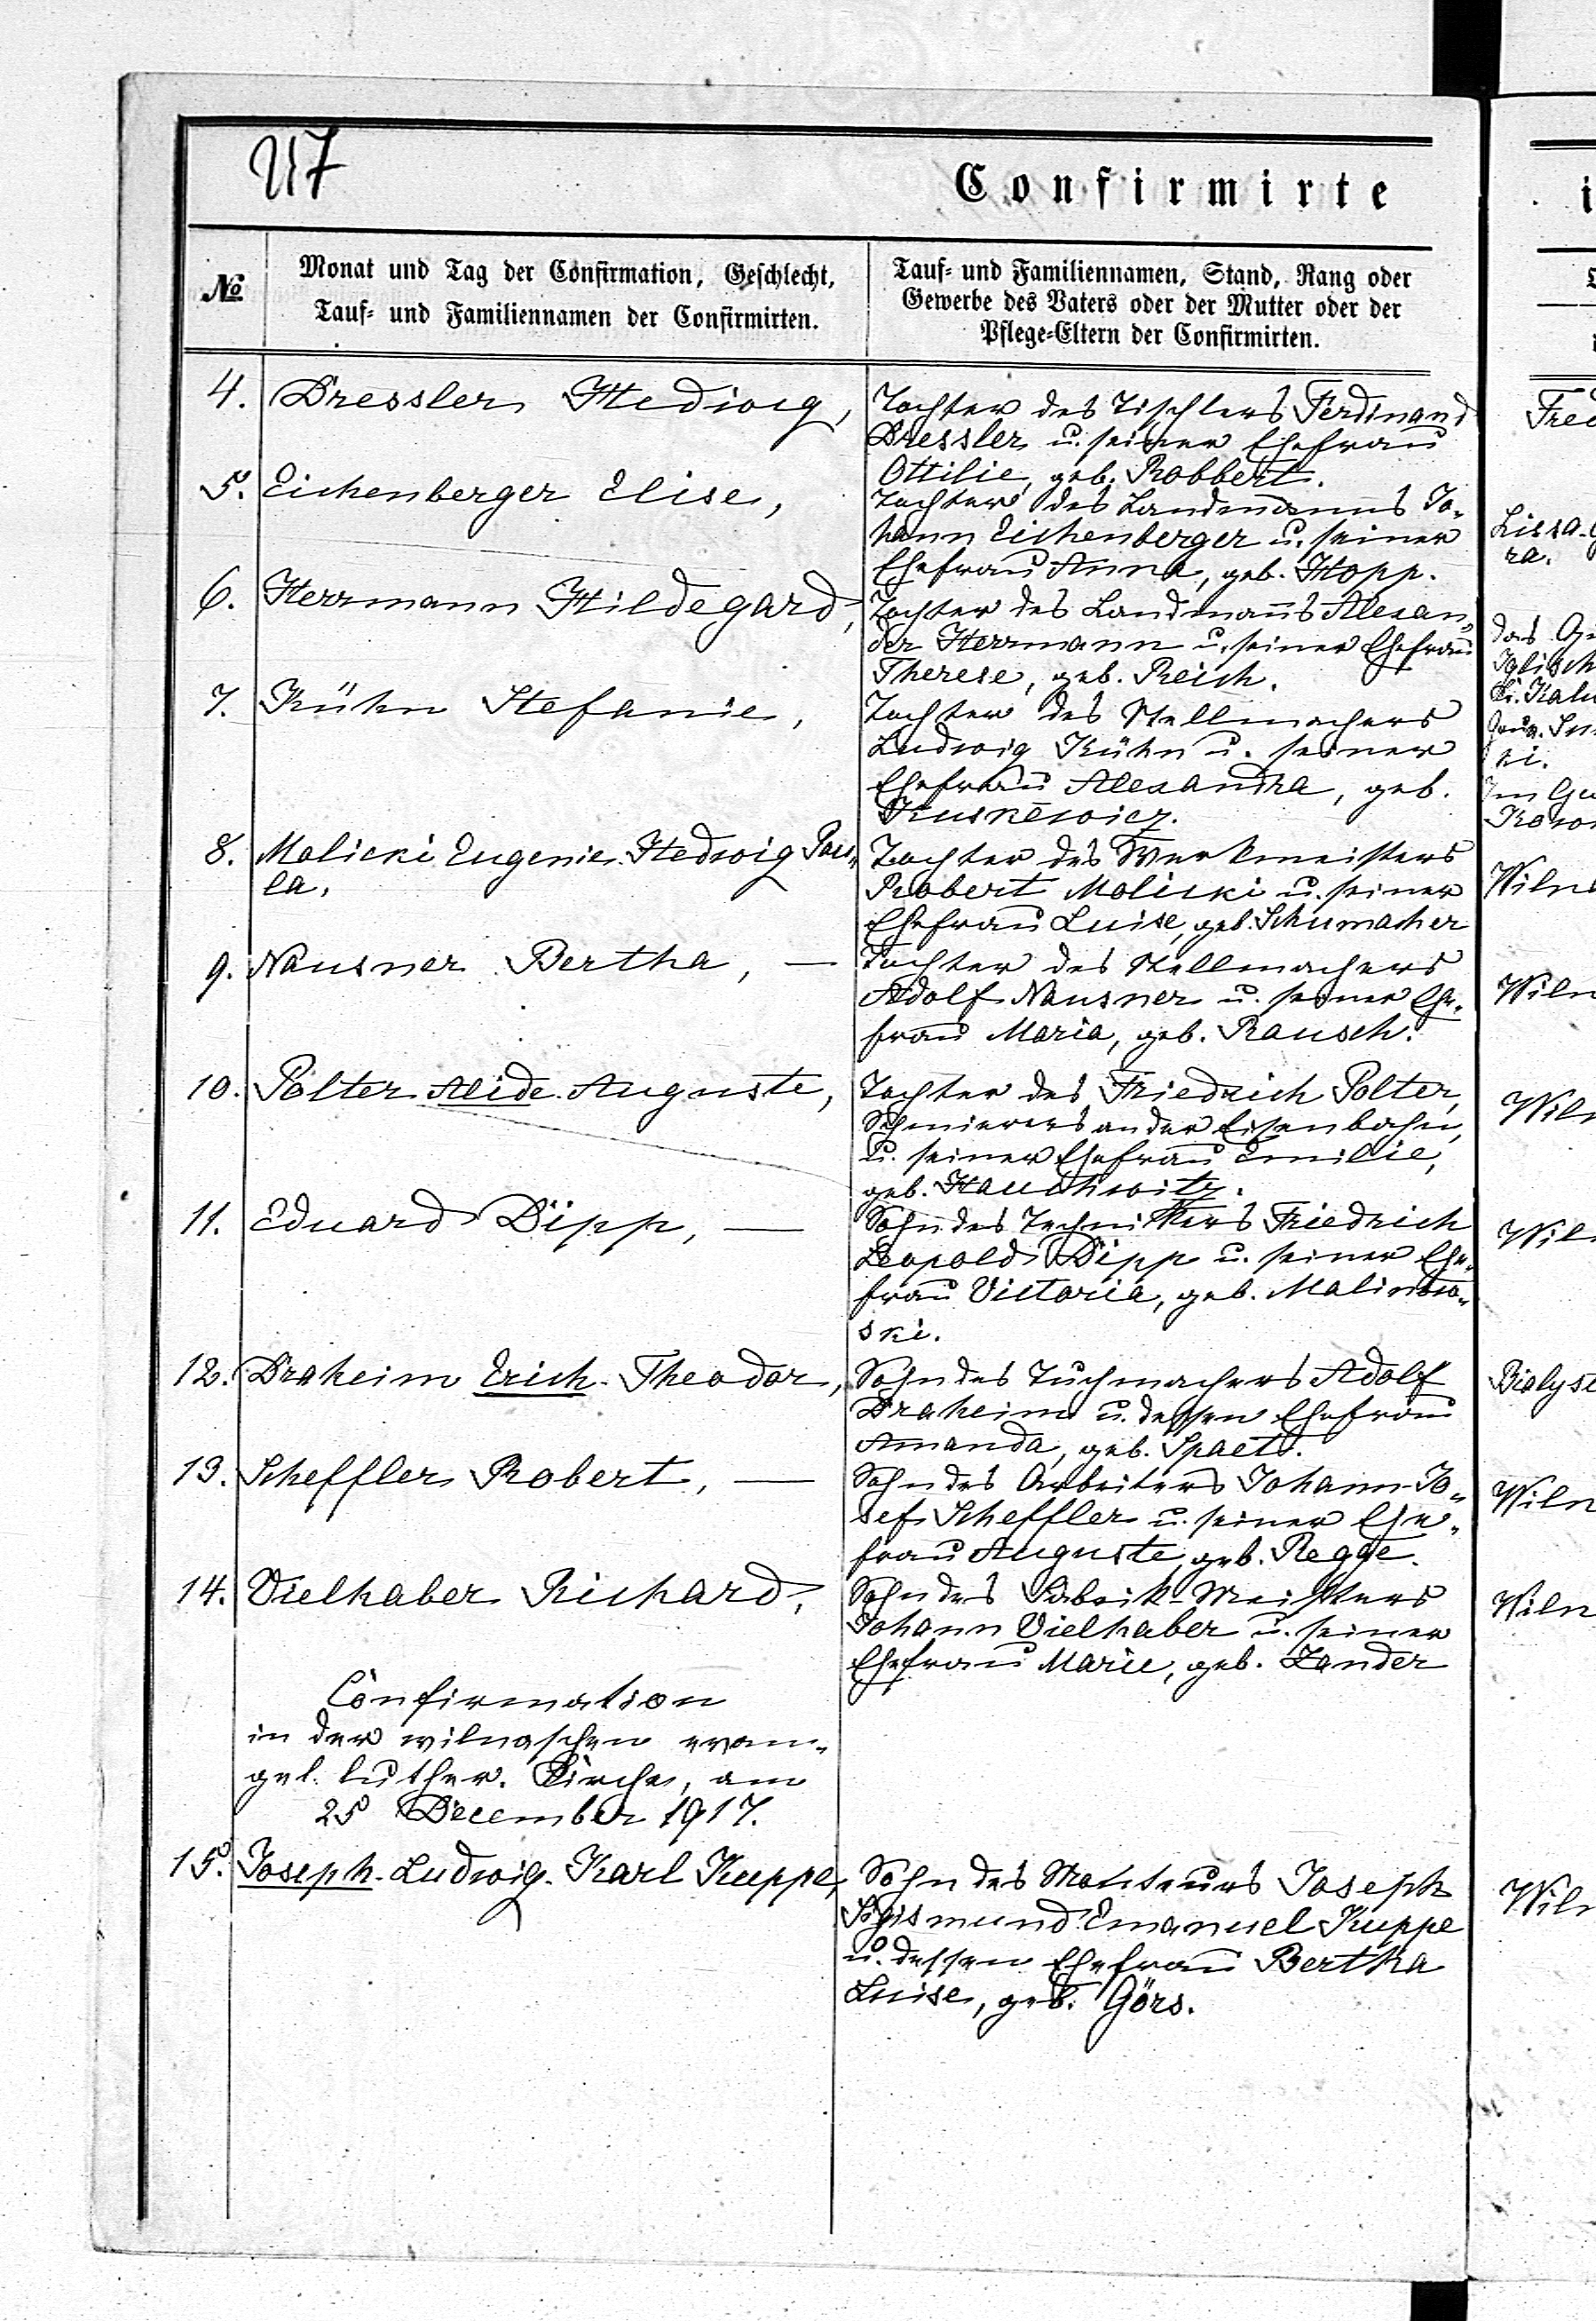 U7
Confirmirte
№
Monat und Tag der Confirmation, Geschlecht,
Tauf- und Familiennamen der Confirmirten.
Tauf- und Familiennamen, Stand, Rang oder
Gewerbe des Vaters oder der Mutter oder der
Pflege-Eltern der Confirmirten.
4. Dressler Hedwig,
Tochter des Tischlers Ferdinand
Dressler u. seiner Ehefrau
Ottilie, geb. Robbert.
5. Eichenberger Elise,
Tochter des Landmanns Jo-
hann Eichenberger u. seiner
Ehefrau Anna, geb. Hopp.
6. Herrmann Hildegard,
Tochter des Landmanns Alexan-
der Herrmann u. seiner Ehefrau
Therese, geb. Reich.
7. Kühn Stefanie,
Tochter des Stellmachers
Ludwig Kühn u. seiner
Ehefrau Alexandra, geb.
Kuskewicz.
8. Malicki Eugenie Hedwig Pau-
la,
Tochter des Werkmeisters
Robert Malicki u. seiner
Ehefrau Luise, geb. Schumacher
9. Nausner Bertha, —
Tochter des Stellmachers
Adolf Nausner u. seiner Ehe-
frau Maria, geb. Rausch.
10. Polter Alide Auguste,
Tochter des Friedrich Polter,
Schmierers an der Eisenbahn,
u. seiner Ehefrau Emilie,
geb. Hauchwitz.
11. Eduard Dipp, —
Sohn des Technikers Friedrich
Leopold Dipp u. seiner Ehe-
frau Victoria, geb. Malinow-
ski.
12. Draheim Erich Theodor,
Sohn des Tuchmachers Adolf
Draheim u. dessen Ehefrau
Amanda, geb. Spaet.
13. Scheffler Robert, —
Sohn des Arbeiters Johann Jo-
sef Scheffler u. seiner Ehe-
frau Auguste, geb. Regge.
14. Vielhaber Richard,
Sohn des Fabrik-Meisters
Johann Vielhaber u. seiner
Ehefrau Marie, geb. Zander
Confirmation
in der wilnaschen evan-
gel. luther. Kirche, am
25 December 1917.
15. Joseph Ludwig Karl Kuppe,
Sohn des Monteurs Joseph
Sigismund Emanuel Kuppe
u. dessen Ehefrau Bertha
Luise, geb. Görs.